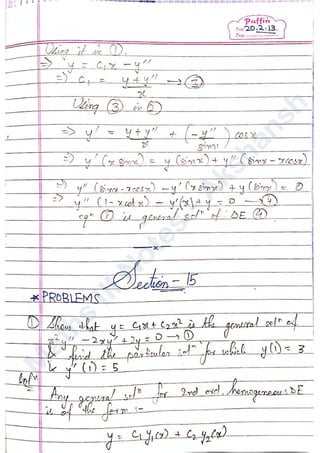 Puffin
Date 20.2.13
Page
Using it in ①.
⇒ y = C₁x − y''
⇒ C₁ = (y + y'')/x → ③
Using ③ in ②
⇒ y' = (y + y'')/x + (−y''/sinx) cosx
⇒ y'(x sinx) = y(sinx) + y''(sinx − xcosx)
⇒ y''(sinx − xcosx) − y'(x sinx) + y(sinx) = 0
⇒ y''(1 − xcotx) − y'(x) + y = 0 → ④
eqⁿ ① is general solⁿ of DE ④
x
Section - 15
* PROBLEMS
① Show that y = C₁x + C₂x² is the general solⁿ of
x²y'' − 2xy' + 2y = 0 → ①
& find the particular solⁿ for which y(1) = 3
& y'(1) = 5
Solⁿ
Any general solⁿ for 2nd ord. homogeneous DE
is of the form :-
y = C₁y₁(x) + C₂y₂(x)